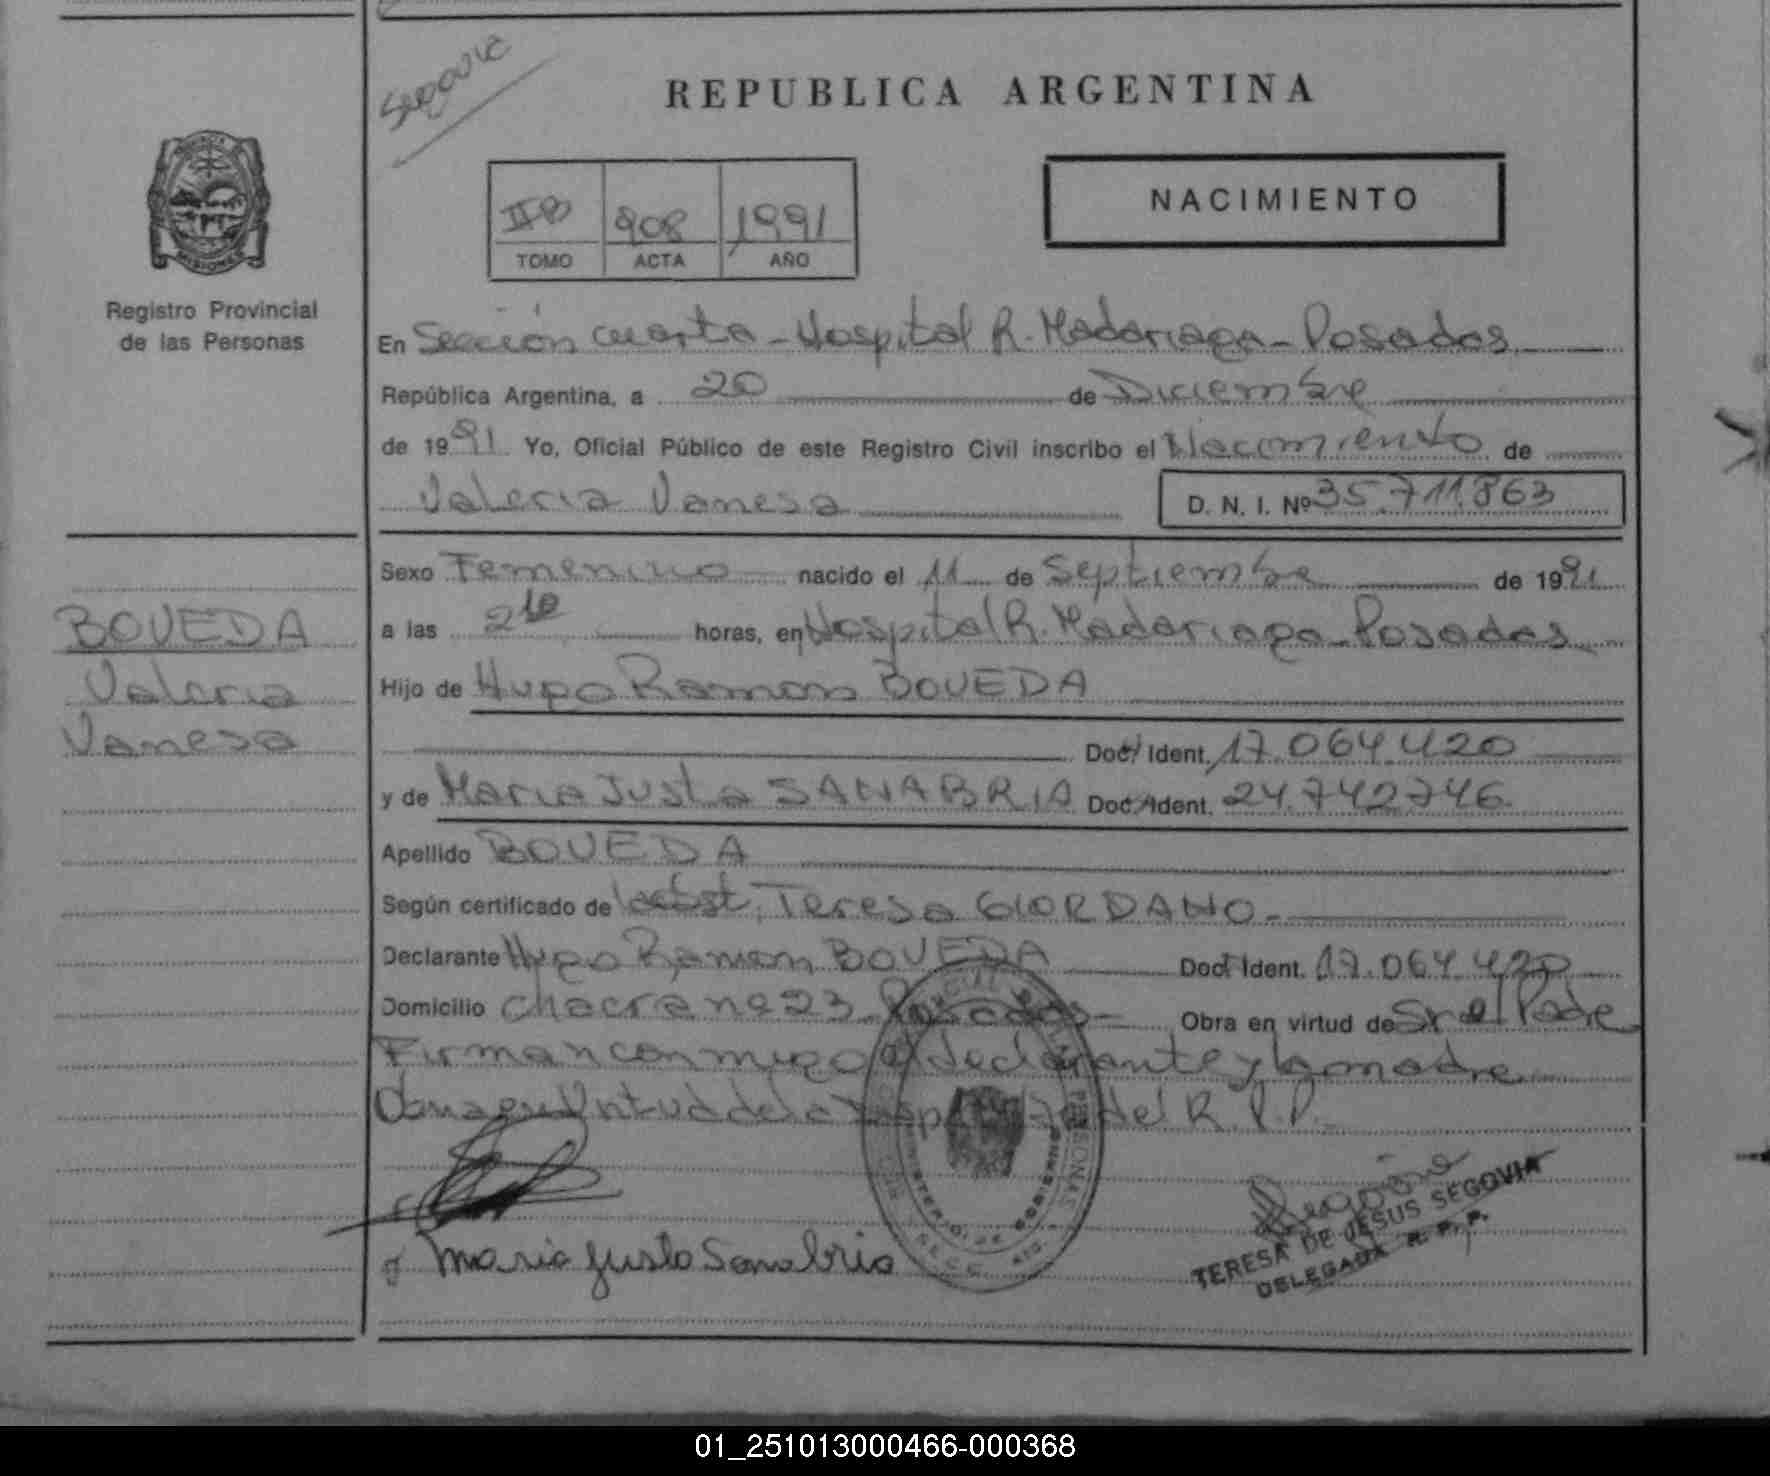 Segovia
REPUBLICA ARGENTINA
NACIMIENTO
IIB 908 1991
TOMO ACTA AÑO
MISIONES
Registro Provincial
de las Personas
En Sección cuarta - Hospital R. Madariaga - Posadas
República Argentina, a 20 de Diciembre
de 1991 Yo, Oficial Público de este Registro Civil inscribo el Nacimiento de
Valeria Vanesa D. N. I. Nº 35.711.863
Sexo Femenino nacido el 11 de Septiembre de 1991
a las 2 10 horas, en Hospital R. Madariaga - Posadas
BOVEDA
Valeria
Vanesa
Hijo de Hugo Ramon BOVEDA
Doc. Ident. 17.064.420
y de Maria Justa SANABRIA Doc. Ident. 24.742.746
Apellido BOVEDA
Según certificado de Teresa GIORDANO -
Declarante Hugo Ramon BOVEDA Doc. Ident. 17.064.420
Domicilio Chacra nº 23 Posadas - Obra en virtud de Sr el Padre
Firman conmigo el declarante y la madre
del R.P.P.
PERSONAS
MINISTERIO DE GOBIERNO
Maria Justa Sanabria
Segovia
TERESA DE JESUS SEGOVIA
DELEGADA R. P. P.
01_251013000466-000368